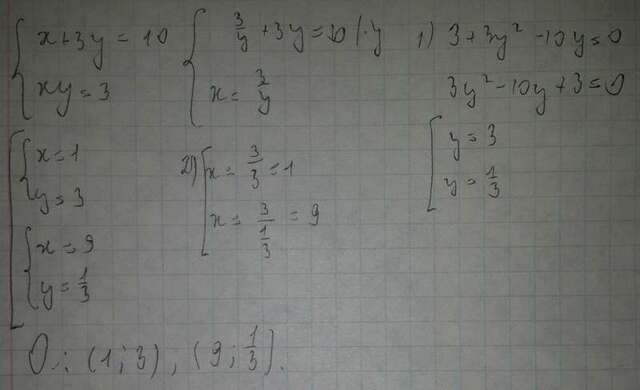 { x+3y = 10
xy = 3
{ 3/y + 3y = 10 |·y
x = 3/y
1) 3+3y² -10y=0
3y²-10y+3=0
[ y = 3
y = 1/3
2) [ x = 3/3 = 1
x = 3/(1/3) = 9
[ { x=1
y=3
{ x=9
y=1/3
О.: (1;3), (9;1/3).